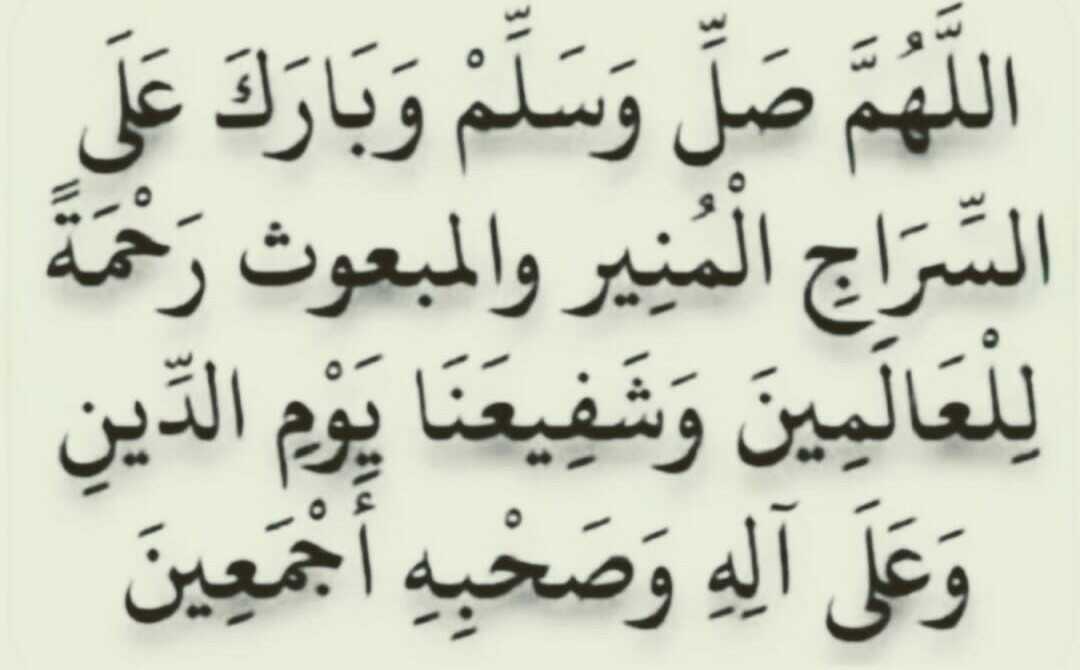 اللَّهُمَّ صَلِّ وَسَلِّمْ وَبَارَكَ عَلَى
السِّرَاجِ الْمُنِير والمبعوث رَحْمَةً
لِلْعَالَمِينَ وَشَفِيعَنَا يَوْمِ الدِّينِ
وَعَلَى آلِهِ وَصَحْبِهِ أَجْمَعِينَ